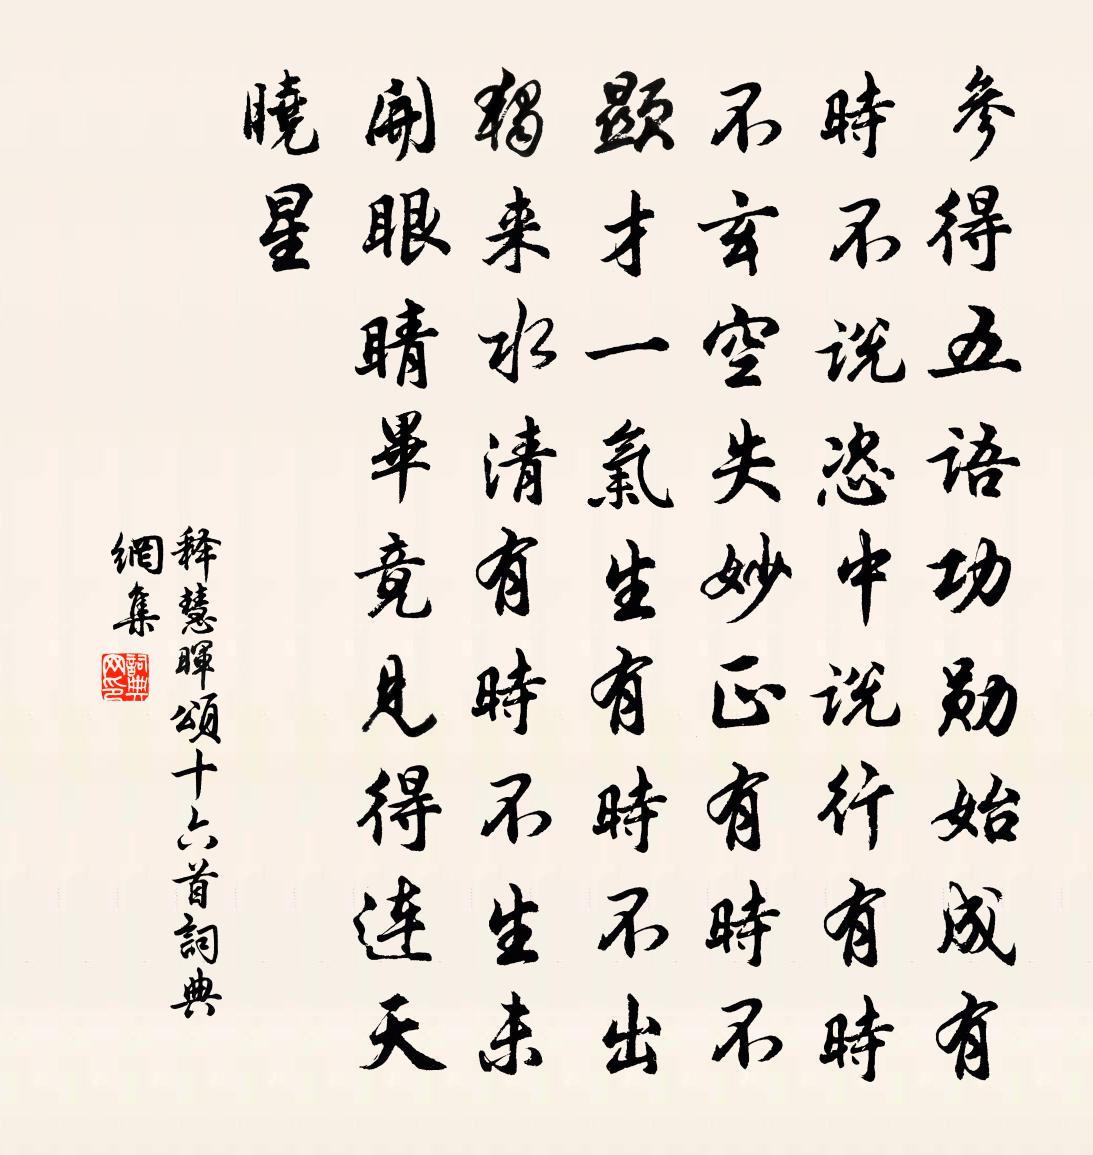 参得五語功勋始成有
時不説恣中説行有時
不玄空失妙正有時不
顕才一氣生有時不出
獨来水清有時不生未
開眼睛畢竟見得連天
曉星
释慧暉頌十六首詞典
網集
詞典
网印